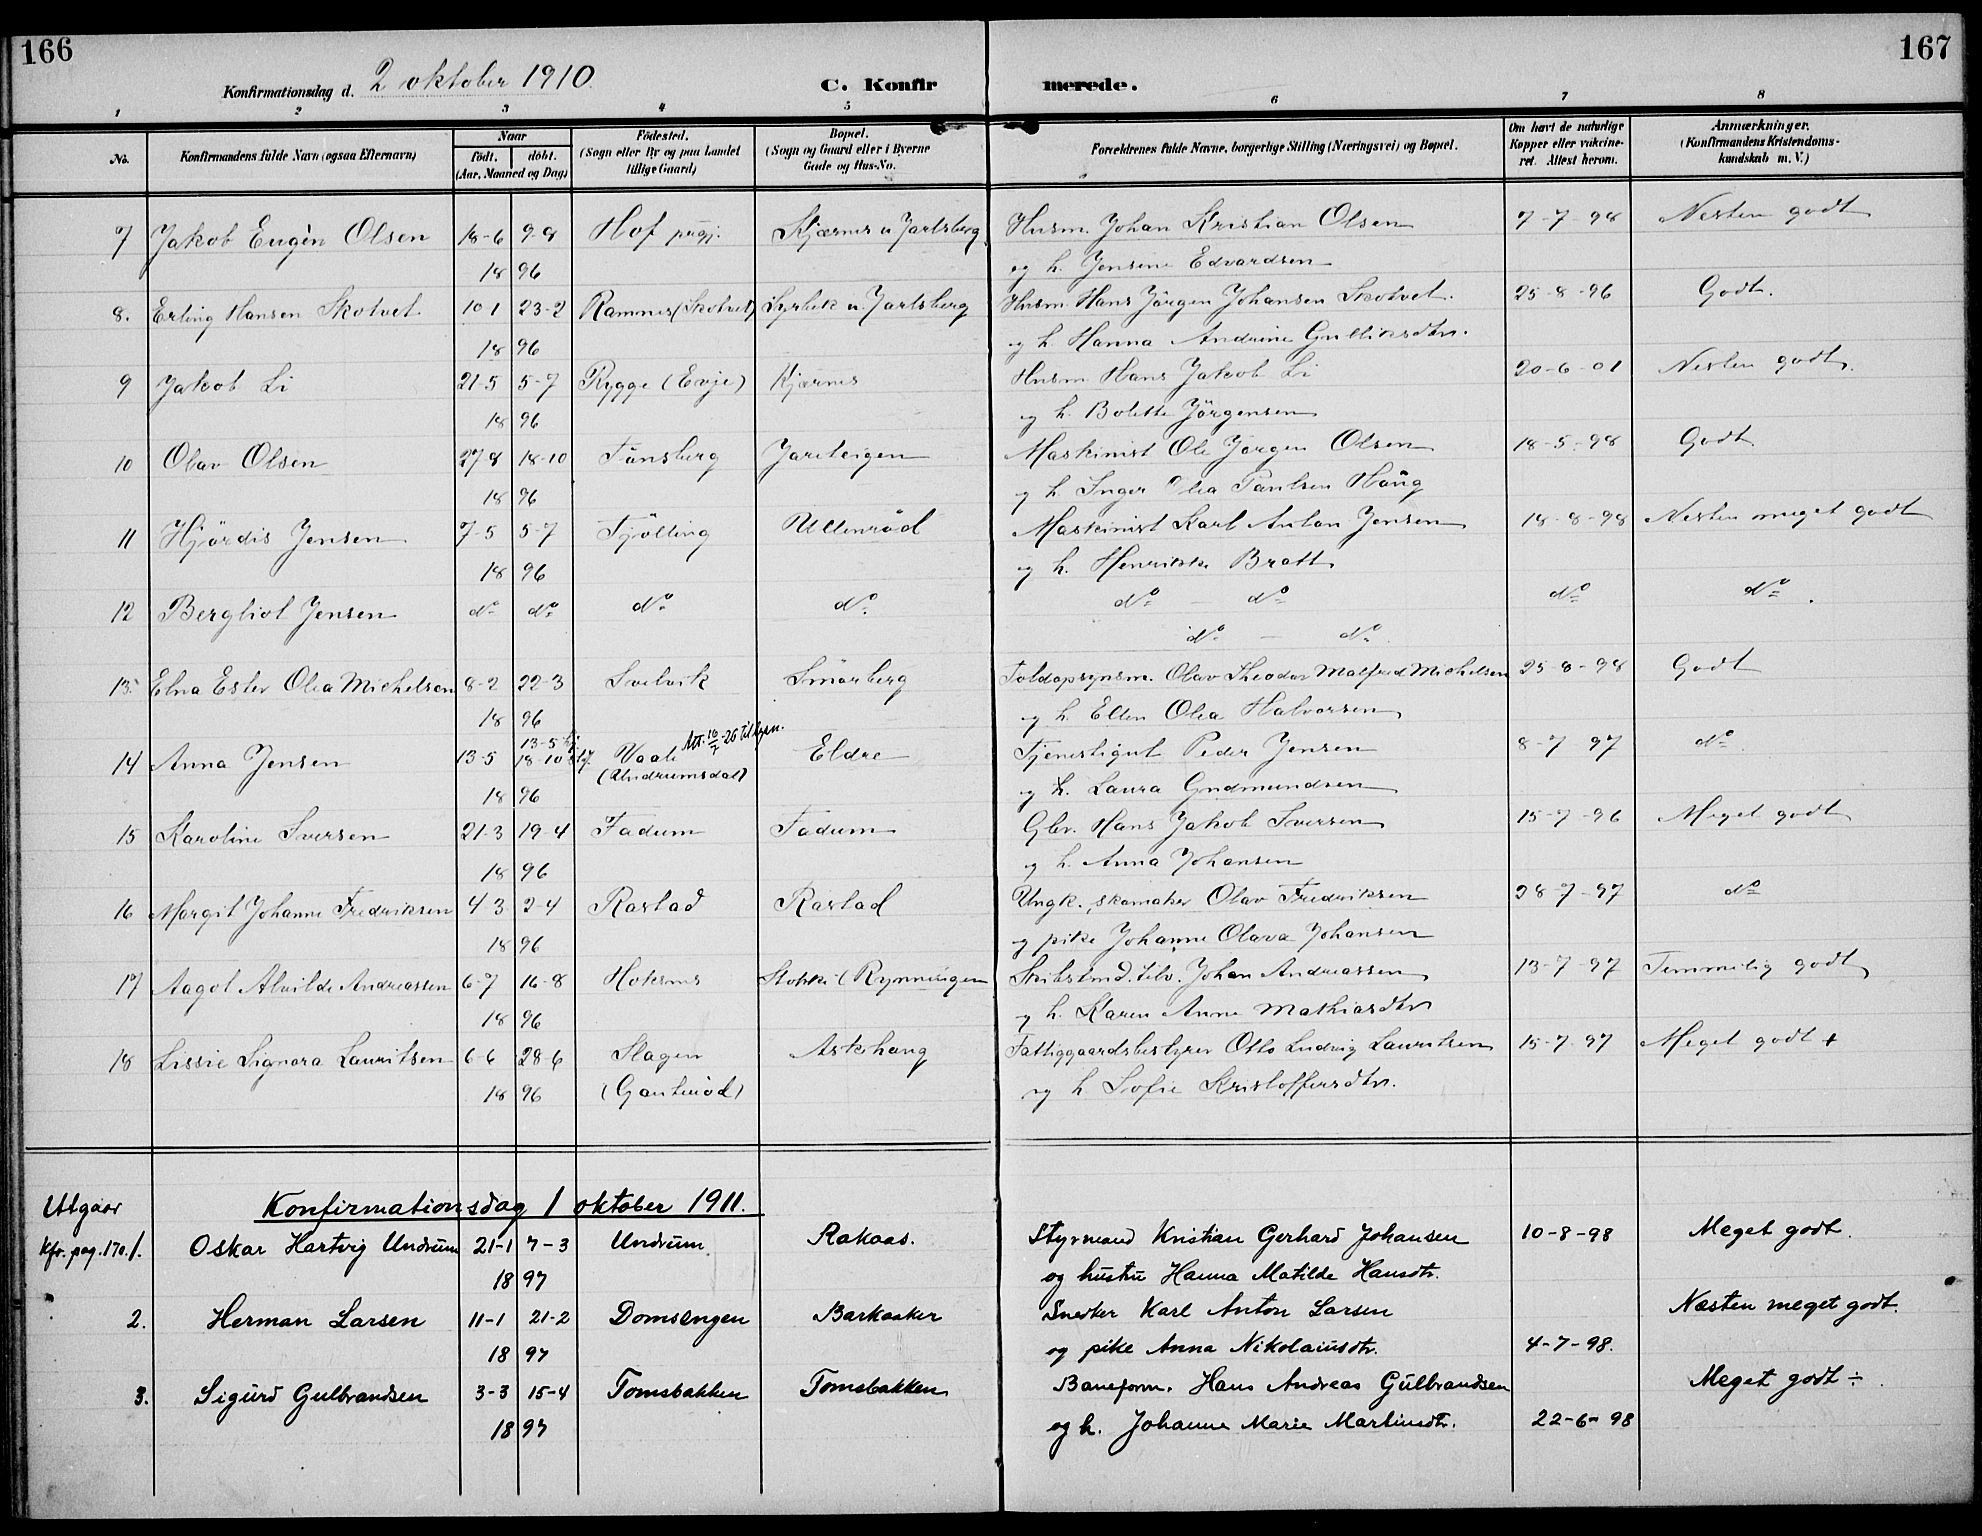 166
167
Konfirmationsdag d. 2 oktober 1910.
C. Konfirmerede.
1 2 3 4 5 6 7 8
No. Konfirmandens fulde Navn (ogsaa Efternavn) Naar födt. döbt. (Aar, Maaned og Dag) Födested. (Sogn eller By og paa Landet tillige Gaard) Bopæl. (Sogn og Gaard eller i Byerne Gade og Hus-No. Forældrenes fulde Navne, borgerlige Stilling (Næringsvei) og Bopæl. Om havt de naturlige Kopper eller vakcineret. Attest herom. Anmærkninger. (Konfirmandens Kristendomskundskab m. V.)
7 Jakob Eugèn Olsen 18-6 9-8 Hof Kjærnes u Jarlsberg Husm. Johan Kristian Olsen 7-7-98 Nesten godt
18 96 og h. Jensine Edvardsen
8. Erling Hansen Skotvet 10-1 23-2 Ramnes (Skotvet) u. Jarlsberg Husm. Hans Jörgen Johansen Skotvet. 25-8-96 Godt.
18 96 og h. Hanna Andrine Gulliksdtr.
9 Jakob Li 21-5 5-7 Rygge (Evje) Kjærnes Husm Hans Jakob Li 20-6-01 Nesten godt.
18 96 og h. Bolette Jörgensen
10 Olav Olsen 27-8 18-10 Tönsberg Jareteigen Maskinist Ole Jörgen Olsen 18-5-98 Godt
18 96 og h. Inger Olea Paulsen Haug
11 Hjördis Jensen 7-5 5-7 Tjölling Ullenröd Maskinist Karl Anton Jensen 18-8-98 Nesten meget godt
18 96 og h. Henrikke Bratt
12 Bergliot Jensen do do do do. do do do do.
do - do.
13. Elna Ester Olea Michelsen 8-2 22-3 Svelvik Smörberg Toldopsynsm. Olav Theodor Malfred Michelsen 25-8-98 Godt
18 96 og h Ellen Olea Halvorsen
14 Anna Jensen 13-5 13-5 18-10 Vaale Att. 10/7-26 til byen. (Undrumsdal) Eldre Tjenestegut Peder Jensen 8-7 97 do
18 96 og h. Laura Gudmundsen
15 Karoline Iversen 21-3 19-4 Fadum Fadum Gbr. Hans Jakob Iversen 15-7-96 Meget godt
18 96 og h. Anna Johansen
16 Margit Johanne Fredriksen 4-3 2-4 Rastad Rastad Ungk. skomaker Olav Fredriksen 28-7-97 do
18 96 og pike Johanne Olava Johansen
17 Aagot Alvilde Andreassen 6-7 16-8 Hoksnes Stokke (Rynningen Skibstmd. Johan Andreassen 13-7-97 Temmelig godt
18 96 og h. Karen Anne Mathiasdtr
18 Lissie Signora Lauritsen 6-6 28-6 Slagen Askhaug Fattiggaardsbestyrer Otto Ludvig Lauritsen 15-7-97 Meget godt +
18 96 (Gauteröd) og h Sofie Kristoffersdtr.
Utgaar Konfirmationsdag 1 oktober 1911.
Kfr. pag. 170. 1. Oskar Hartvig Undrum 21-1 7-3 Undrum. Rakaas. Styrmand Kristian Gerhard Johansen 10-8-98 Meget godt.
18 97 og hustru Hanna Matilde Hansdtr.
2. Herman Larsen 11-1 21-2 Domsengen Barkaaker Snedker Karl Anton Larsen Næsten meget godt.
18 97 og pike Anna Nikolaiusdtr. 4-7-98.
3. Sigurd Gulbrandsen 3-3 15-4 Tomsbakken Tomsbakken Baneform. Hans Andreas Gulbrandsen Meget godt ÷
18 97 og h. Johanne Marie Martinsdtr. 22-6-98